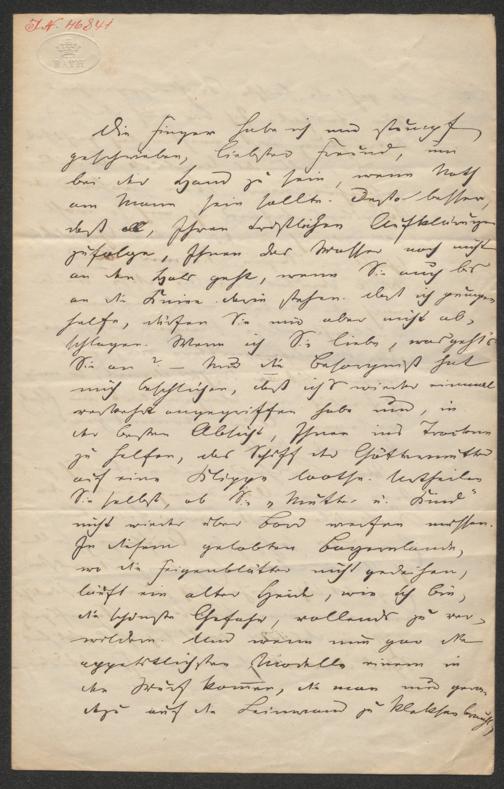 J.N. 46841
BATH
Die Finger habe ich mir stumpf
geschrieben, liebster Freund, um
bei der Hand zu sein, wenn Noth
am Mann sein sollte. Desto besser,
daß Ihren tröstlichen Aufklärungen
zufolge, Ihnen das Wasser noch nicht
an den Hals geht, wenn Sie auch bis
an die Kniee darin stehen. daß ich
helfe, dürfen Sie mir aber nicht ab-
schlagen. Wenn ich Sie liebe, was geht's
Sie an? – Nur die Besorgniß hat
mich beschlichen, daß ich's wieder einmal
verkehrt angegriffen habe und, in
der besten Absicht, Ihnen ins Trockene
zu helfen, das Schiff der Göttermutter
auf eine Klippe lootse. Urtheilen
Sie selbst, ob Sie „Mutter u. Kind"
nicht wieder über Bord werfen müssen.
In diesem gelobten Bayernlande,
wo die Feigenblätter nicht gedeihen,
läuft ein alter Heide, wie ich bin,
die schönste Gefahr, vollends zu ver-
wildern. Und wenn nun gar die
appetitlichsten Modelle einem in
den Wurf kommen, die man nur gera-
dezu auf die Leinwand zu klecksen braucht,